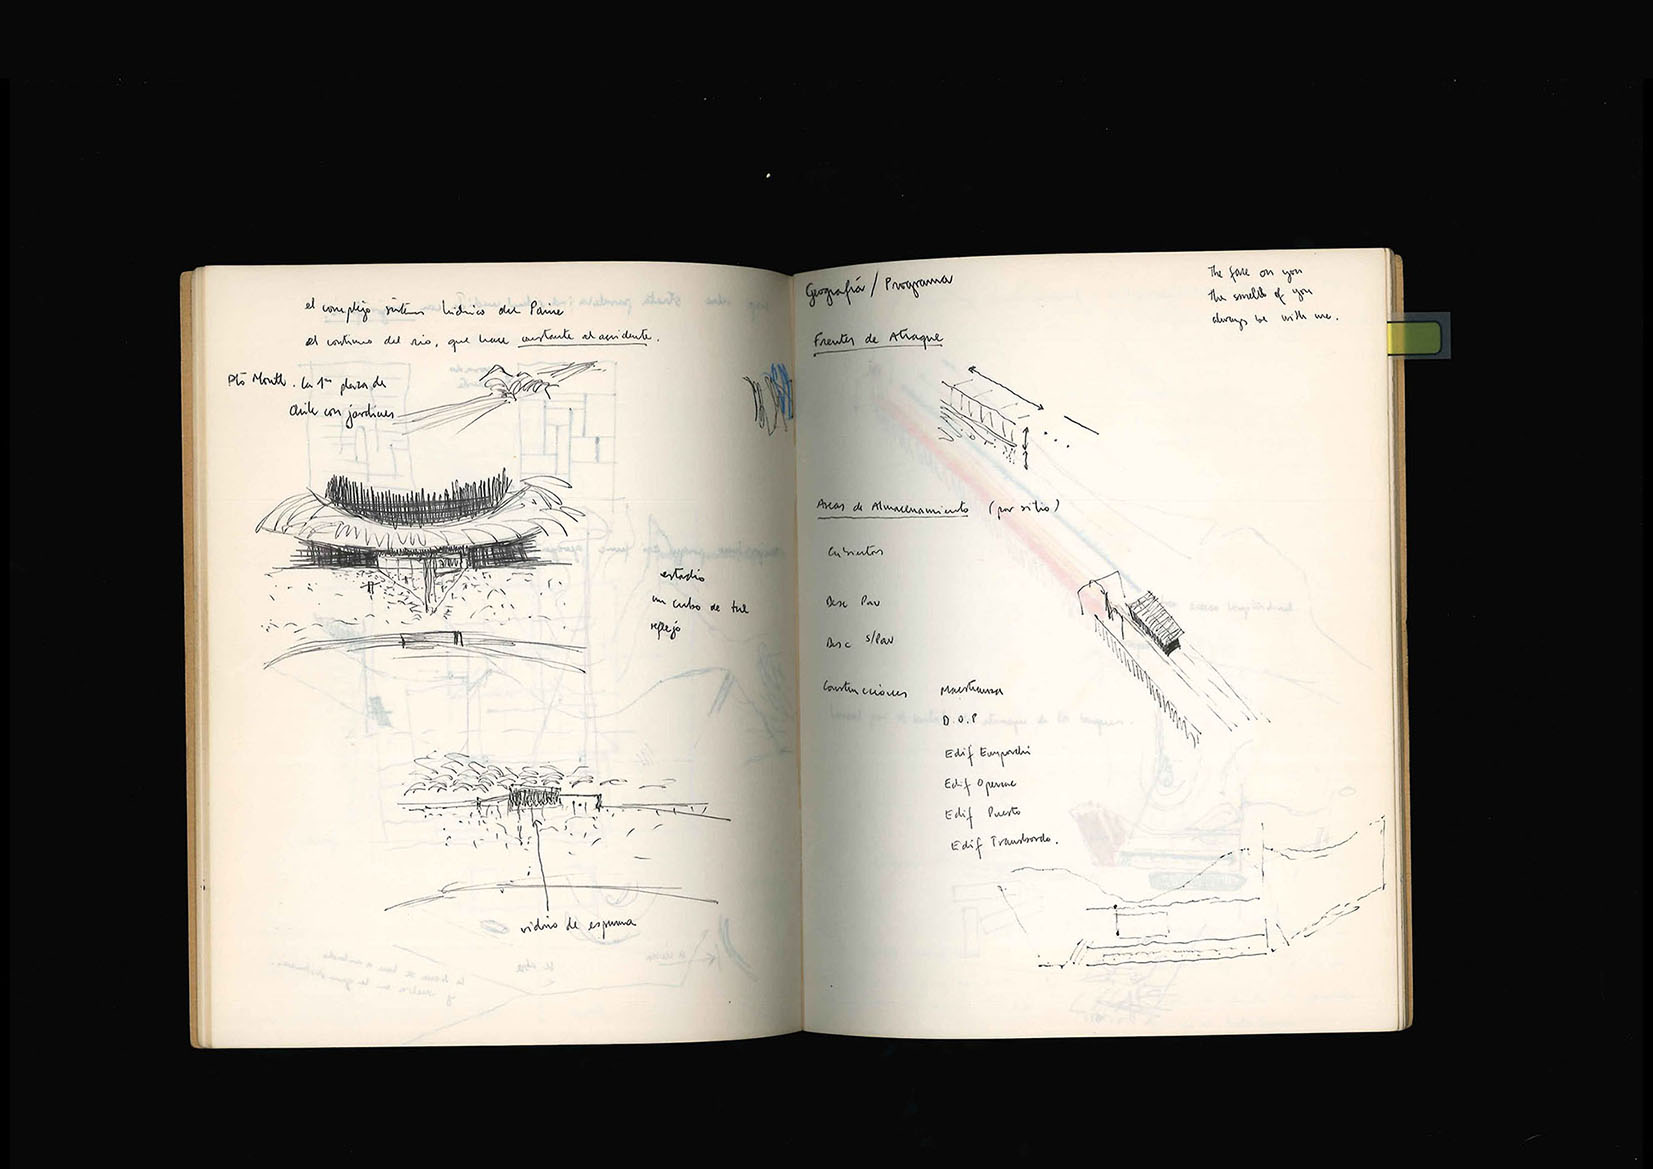 el complejo sistema hídrico del Paine
el continuo del rio, que hace constante al accidente.
Pto Montt. La 1ra plaza de
Chile con jardines
estadio
un cubo de tul
reflejo
vidrio de espuma
Geografía / Programa
The face on you
the smells of you
always be with me.
Frentes de Atraque
Areas de Almacenamiento (por sitio)
Cubiertos
Desc Pav
Desc s/Pav
Construcciones Maestranza
D.O.P
Edif Emporchi
Edif
Edif Puerto
Edif Transbordo.